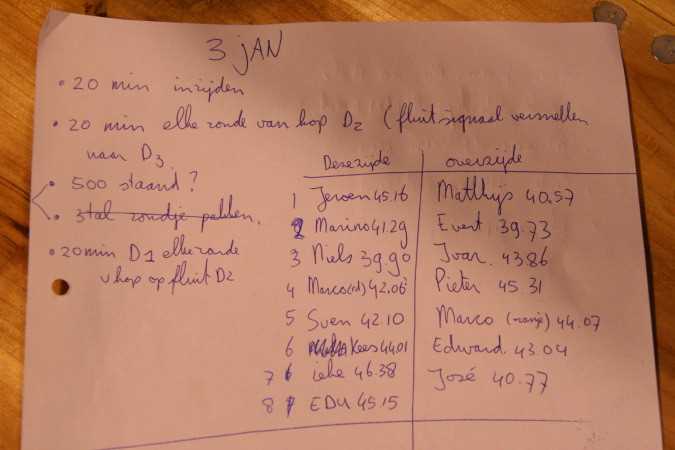 3 JAN
• 20 min inrijden
• 20 min elke ronde van kop D2 (fluitsignaal versnellen
naar D3.
• 500 staand?
• 3tal rondje pakken.
• 20min D1 elke ronde
v kop op fluit D2
Dezezijde overzijde
1 Jeroen 45.16 Matthijs 40.57
2 Marino 41.29 Evert 39.73
3 Niels 39.90 Ivar 43.86
4 Marco 42.06 Pieter 45.31
5 Sven 42.10 Marco (oranje) 44.07
6 Kees 44.01 Edward 43.04
7 ieke 46.38 José 40.77
8 EDU 45.15